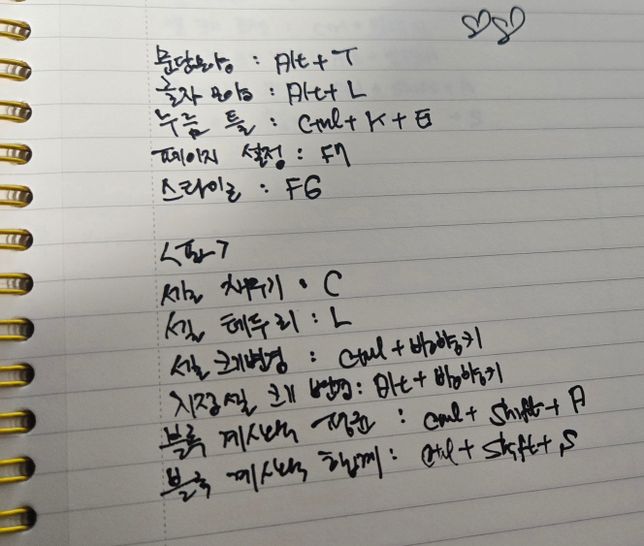 문단모양 : Alt + T
글자 모양 : Alt + L
누름 틀 : Ctrl + K + E
페이지 설정 : F7
스타일 : F6
<표>
셀 채우기 : C
셀 테두리 : L
셀 크기변경 : Ctrl + 방향키
지정셀 크기 변경 : Alt + 방향키
블록 계산식 평균 : Ctrl + Shift + A
블록 계산식 합계 : Ctrl + Shift + S